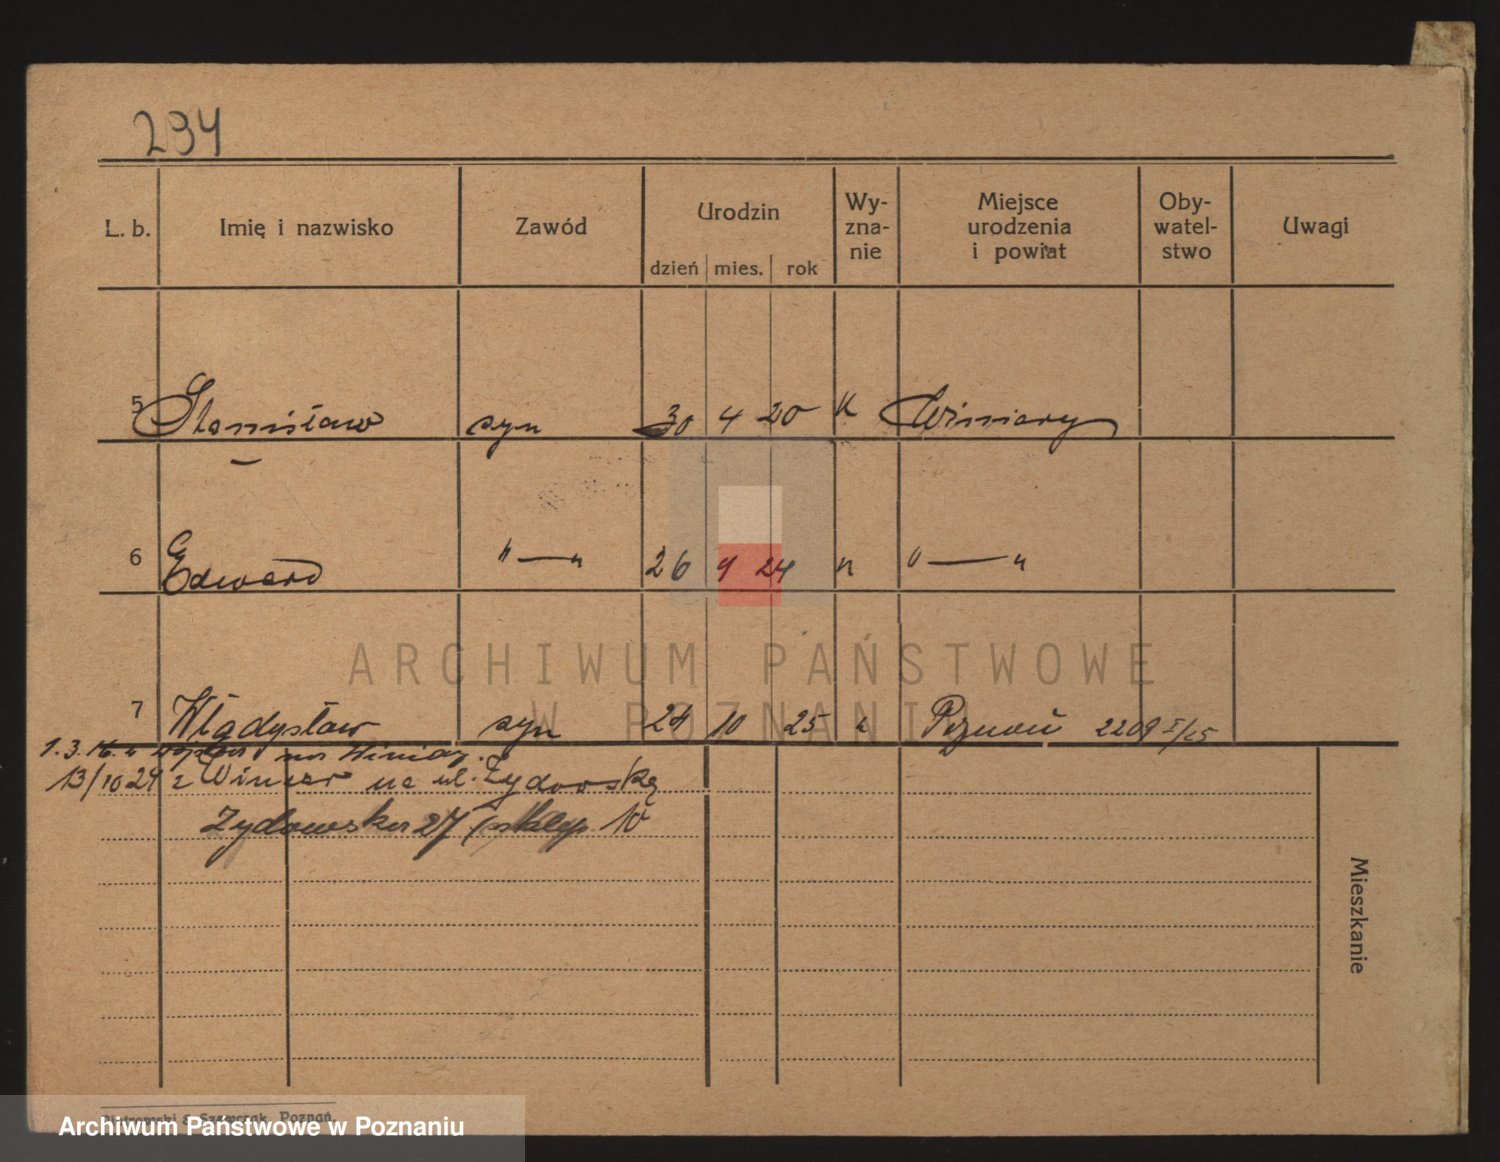 294
L. b. Imię i nazwisko Zawód Urodzin Wy-zna-nie Miejsce urodzenia i powiat Oby-watel-stwo Uwagi
dzień mies. rok
5 Stanisław syn 30 4 20 k Winiary
6 Edward "—" 26 9 24 " "—"
7 Władysław syn 24 10 25 " Poznań 2209 I/25
1. 3. na Winiary.
13/10 24 z Winiar na ul. Żydowską
Żydowska 27 10
Mieszkanie
ARCHIWUM PAŃSTWOWE
W POZNANIU
Piotrowski & Szewczak, Poznań.
Archiwum Państwowe w Poznaniu